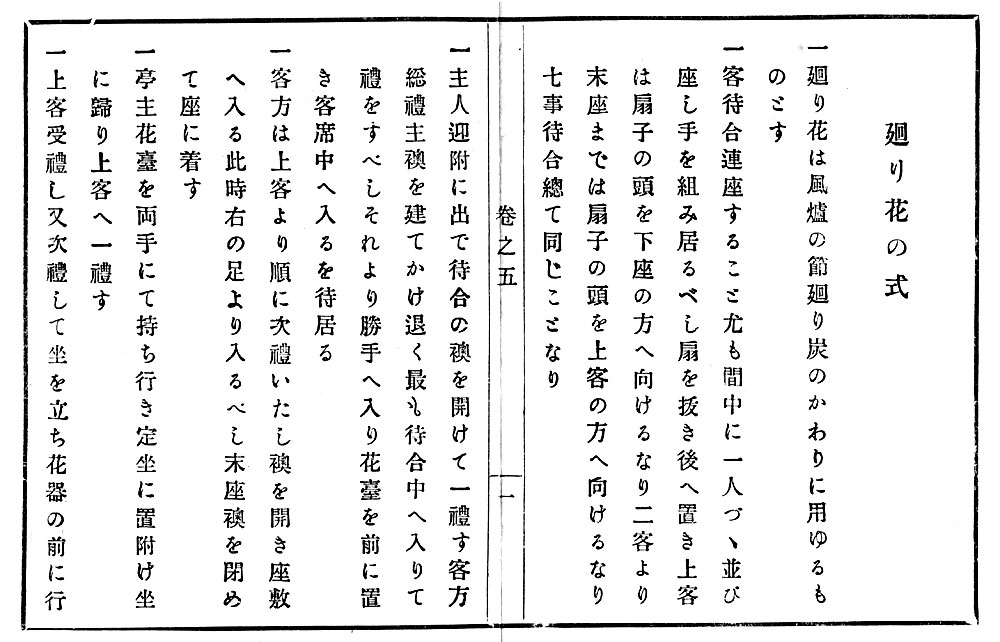 廻り花の式
一廻り花は風爐の節廻り炭のかわりに用ゆるも
のとす
一客待合連座すること尤も間中に一人づゝ並び
座し手を組み居るべし扇を抜き後へ置き上客
は扇子の頭を下座の方へ向けるなり二客より
末座までは扇子の頭を上客の方へ向けるなり
七事待合總て同じことなり
卷之五
一
一主人迎附に出で待合の襖を開けて一禮す客方
総禮主襖を建てかけ退く最も待合中へ入りて
禮をすべしそれより勝手へ入り花臺を前に置
き客席中へ入るを待居る
一客方は上客より順に次禮いたし襖を開き座敷
へ入る此時右の足より入るべし末座襖を閉め
て座に着す
一亭主花臺を両手にて持ち行き定坐に置附け坐
に歸り上客へ一禮す
一上客受禮し又次禮して坐を立ち花器の前に行